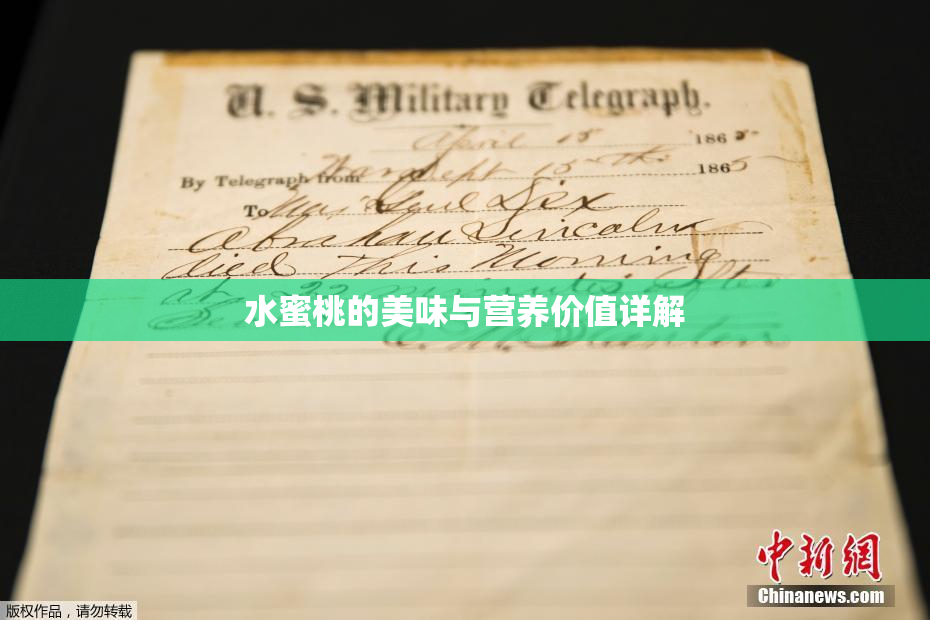 U. S. Military Telegraph.
April 15 1865
By Telegraph from War Dept 15th 1865
To Maj Genl Dix
Abraham Lincoln
died This Morning
at 22 minutes after
水蜜桃的美味与营养价值详解
E. M. Stanton
中新网
Chinanews.com
版权作品，请勿转载